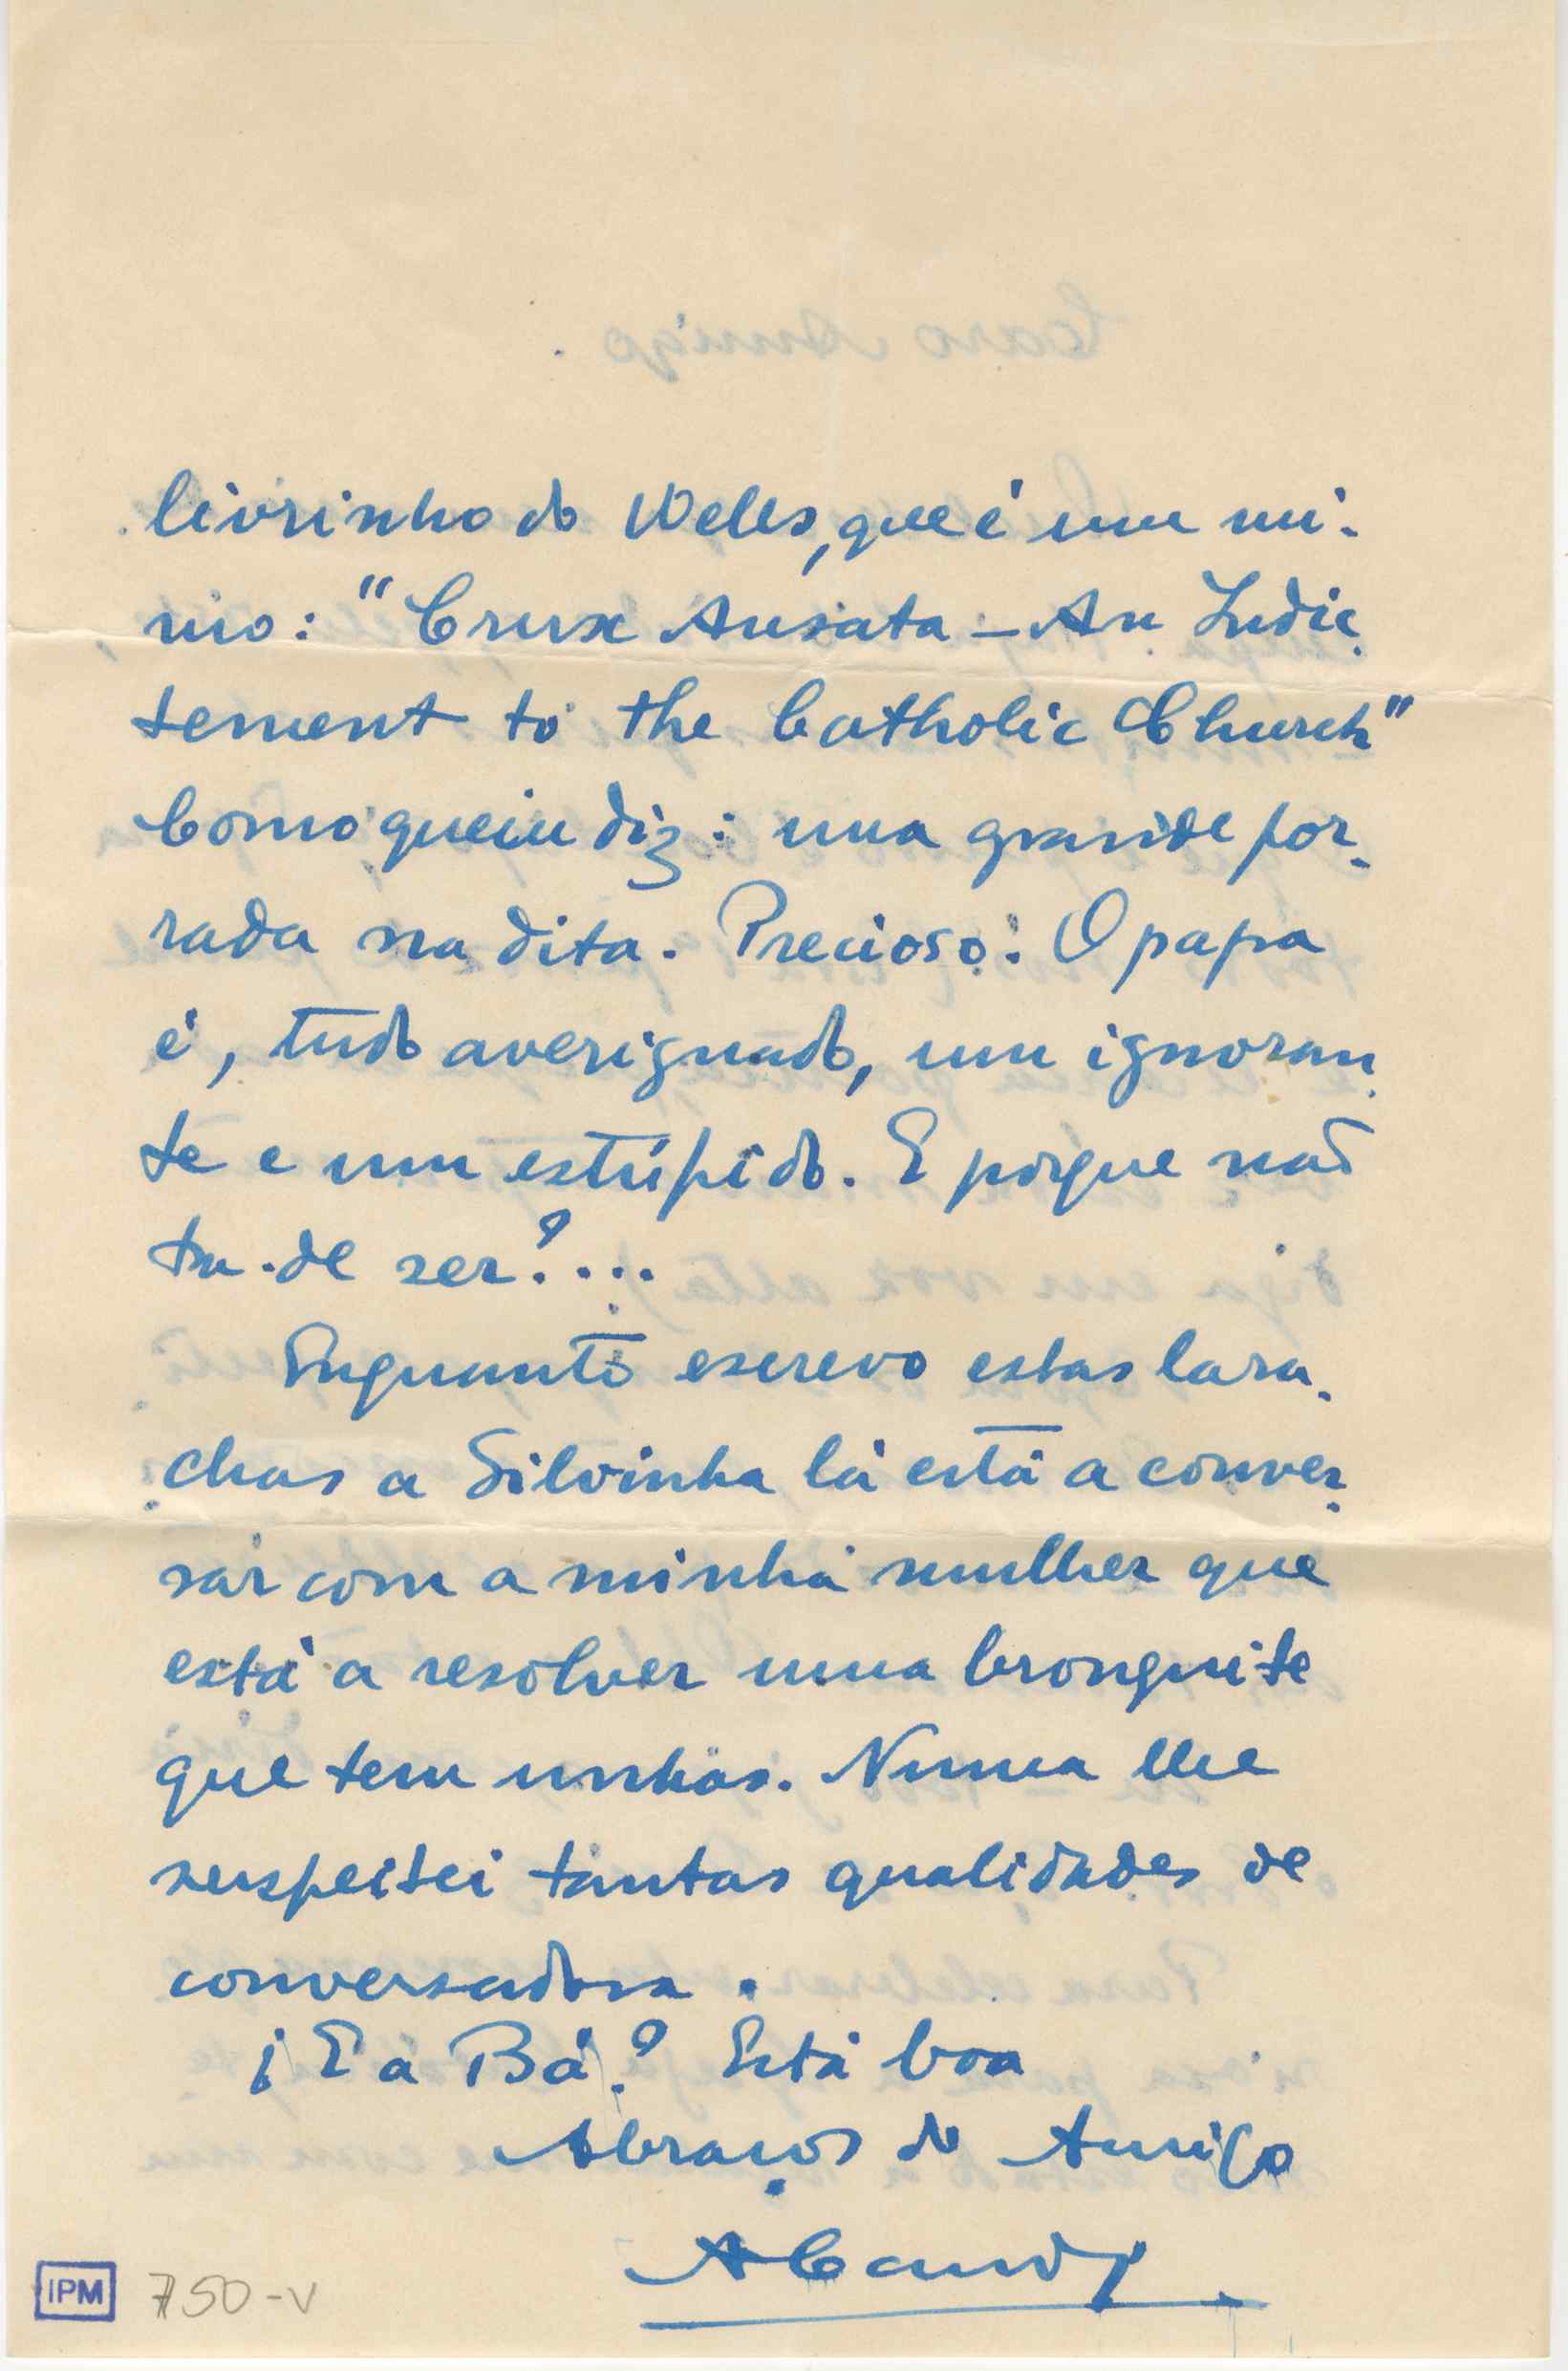 livrinho do Wells, que é um mi-
mo: "Crux Ansata – An Indic-
tement to the Catholic Church"
Como quem diz: uma grande por-
rada na dita. Precioso! O papa
é, tudo averiguado, um ignoran-
te e um estúpido. E porque não
ha-de ser?...
Enquanto escrevo estas lara-
chas a Silvinha lá está a conver-
sar com a minha mulher que
está a resolver uma bronquite
que tem unhas. Nunca lhe
suspeitei tantas qualidades de
conversadora.
¡E a Bá? Está boa
Abraços do Amigo
IPM 750-V